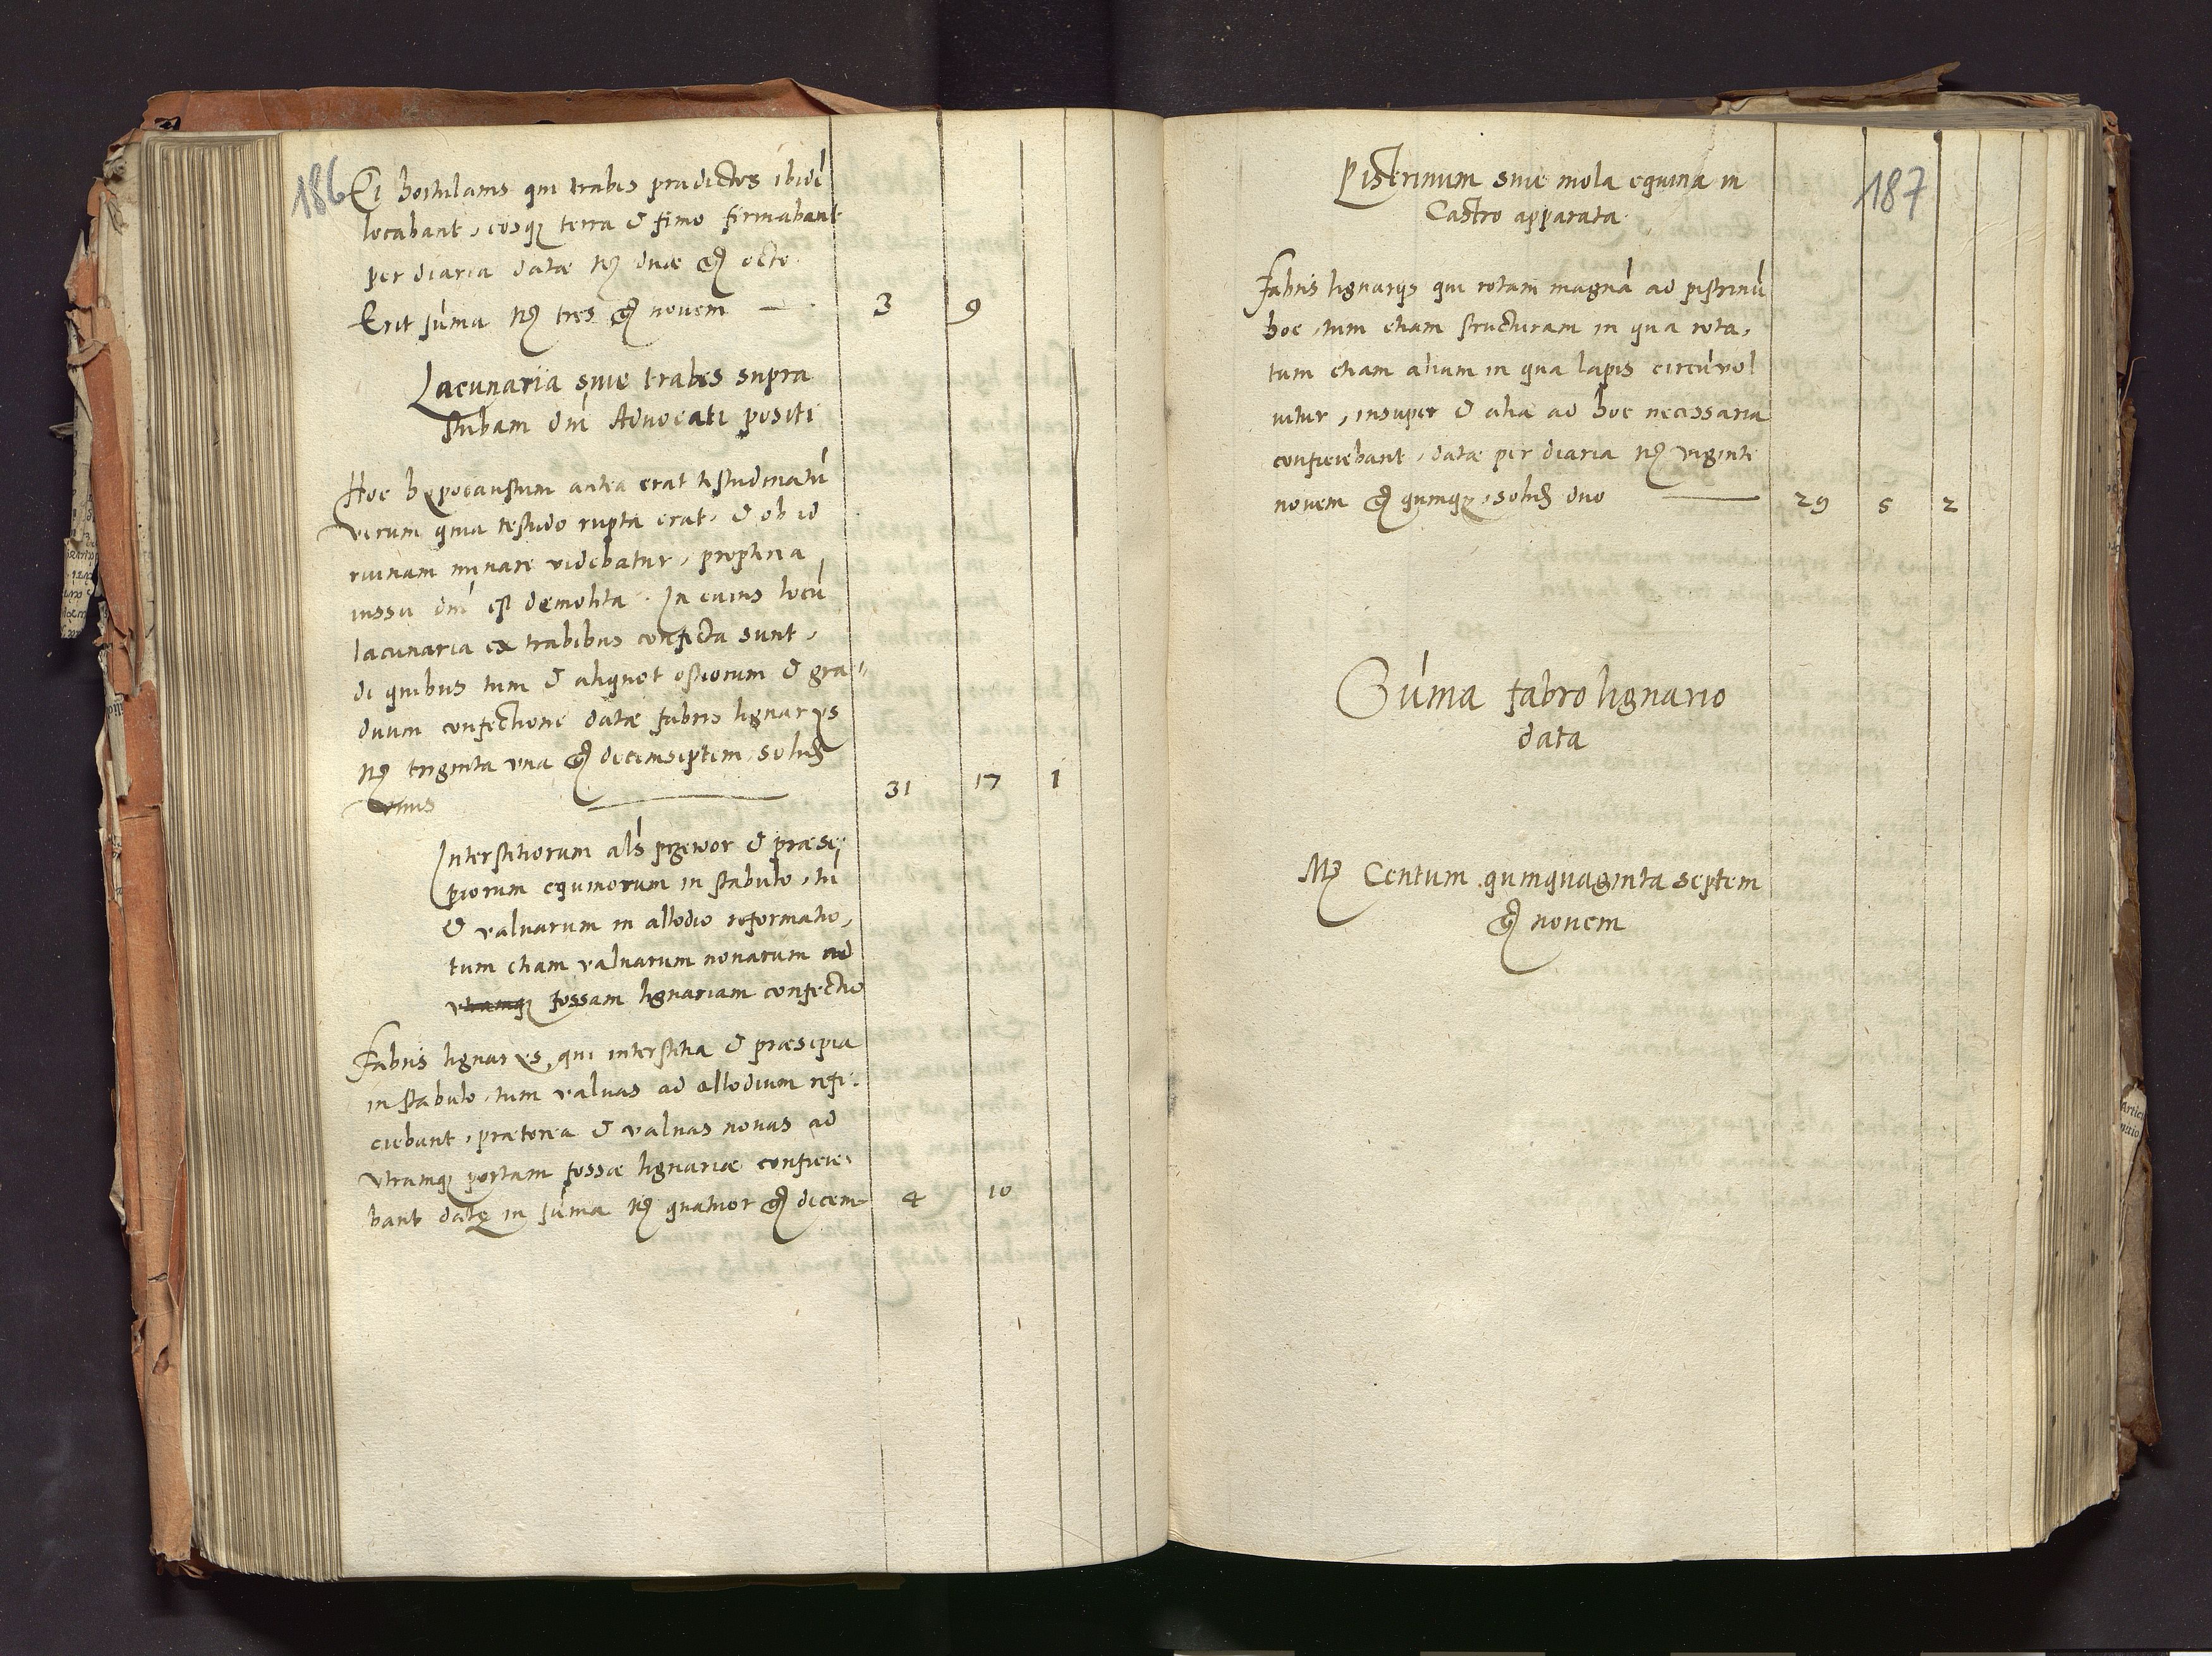 186
Et hortulanis qui trabes prædictos ibidē
locabant, eosq; terra & fimo firmabant
per diaria datæ mc̄ duæ gr̄ octo.
Erit sūma mc̄ tres gr̄ novem — 3 9
Lacunaria siue trabes supra
stubam dn̄i Advocati positi
Hoc hypocaustum antea erat testudinatū
verum quia testudo rupta erat, & ob id
ruinam minare videbatur, propterea
iussu dn̄i est demolita. In cuius locū
lacunaria ex trabibus confecta sunt,
de quibus tum & aliquot ostiorum & gra-
duum confectione datæ fabris lignarys
mc̄ triginta vna gr̄ decemseptem, solid
vnus — 31 17 1
Interstitiorum als̄ przewor & præse-
piorum equinorum in stabulo, tū
& valuarum in allodio reformatio,
tum etiam valuarum nouarum ad
vtramq; fossam lignariam confectio
Fabris lignarys, qui interstitia & præsepia
in stabulo, tum valuas ad allodium refi-
ciebant, præterea & valuas nouas ad
vtramq; portam fossæ lignariæ conficie-
bant datę in sūma mc̄ quatuor gr̄ decem 4 10
187
Pistrinum siue mola equina in
Castro apparata.
Fabris lignarijs qui rotam magnā ad pistrinū
hoc, tum etiam structuram in qua rota,
tum etiam aliam in qua lapis circūvol
uitur, insuper & alia ad hoc necessaria
conficiebant, datæ per diaria mc̄ viginti
novem gr̄ quinq;, solid duo — 29 5 2
Sūma fabro lignario
data
Mc̄ Centum quinquaginta septem
gr̄ novem